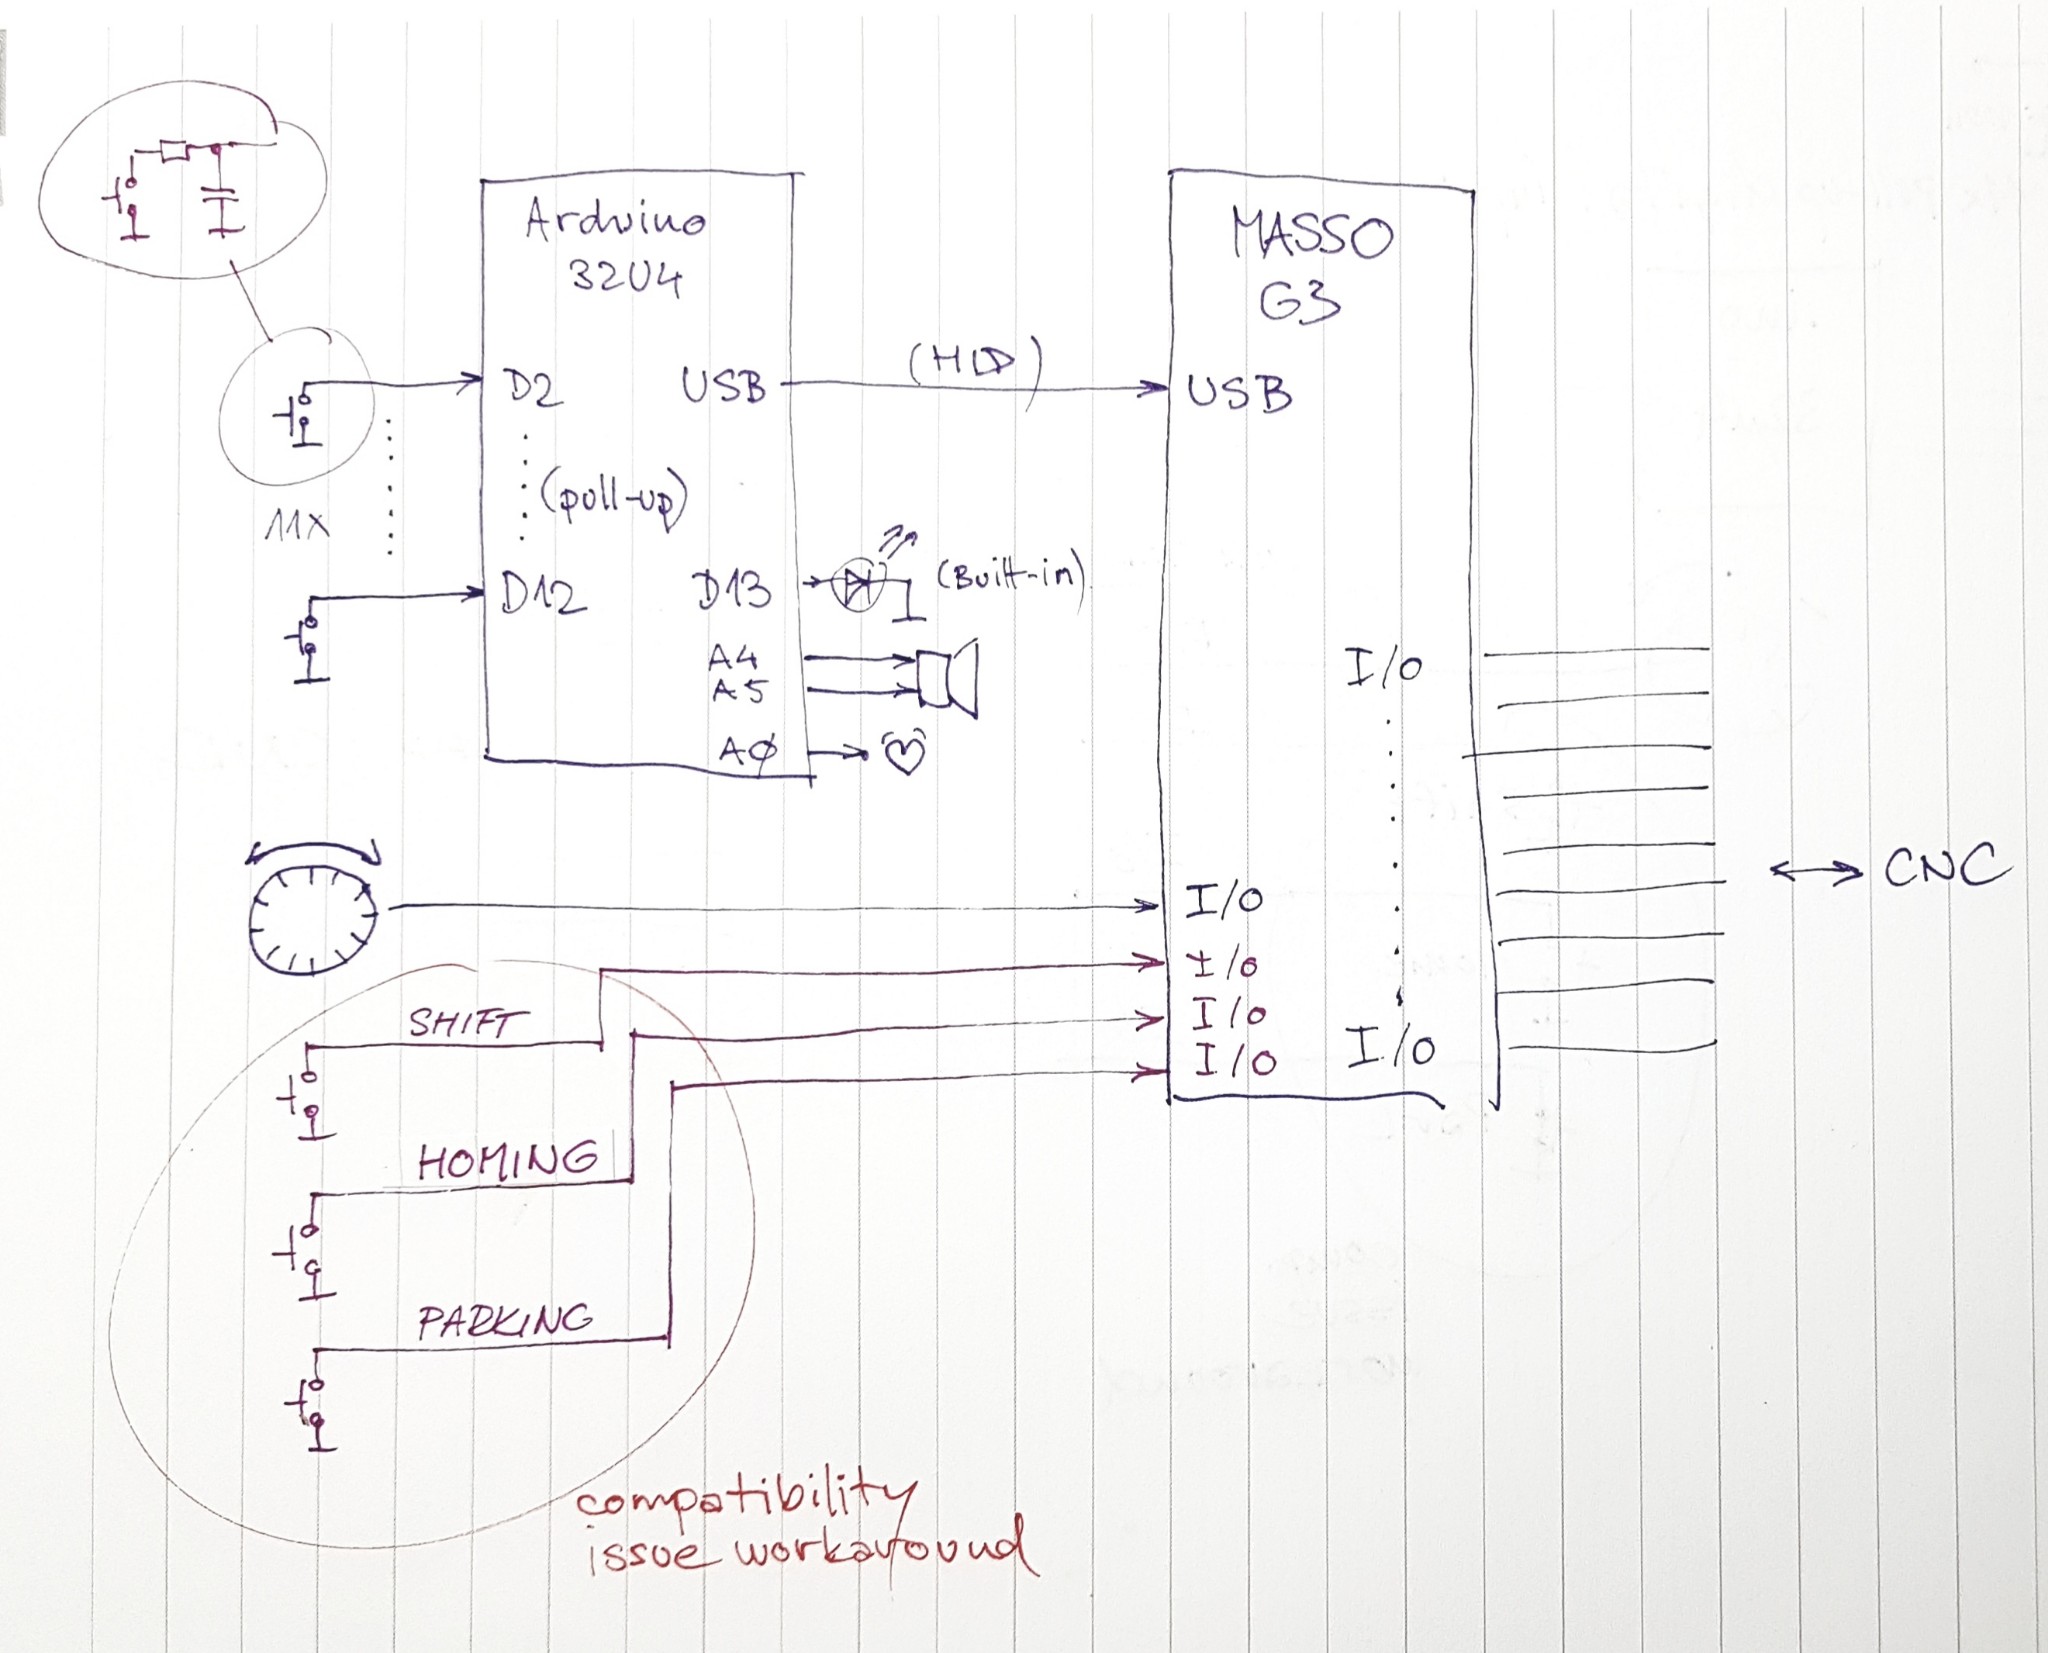 Arduino
32U4
MASSO
G3
D2
USB
(HID)
USB
11X
(pull-up)
D12
D13
(Built-in)
A4
A5
A0
I/O
I/O
I/O
I/O
I/O
I/O
CNC
SHIFT
HOMING
PARKING
compatibility
issue workaround